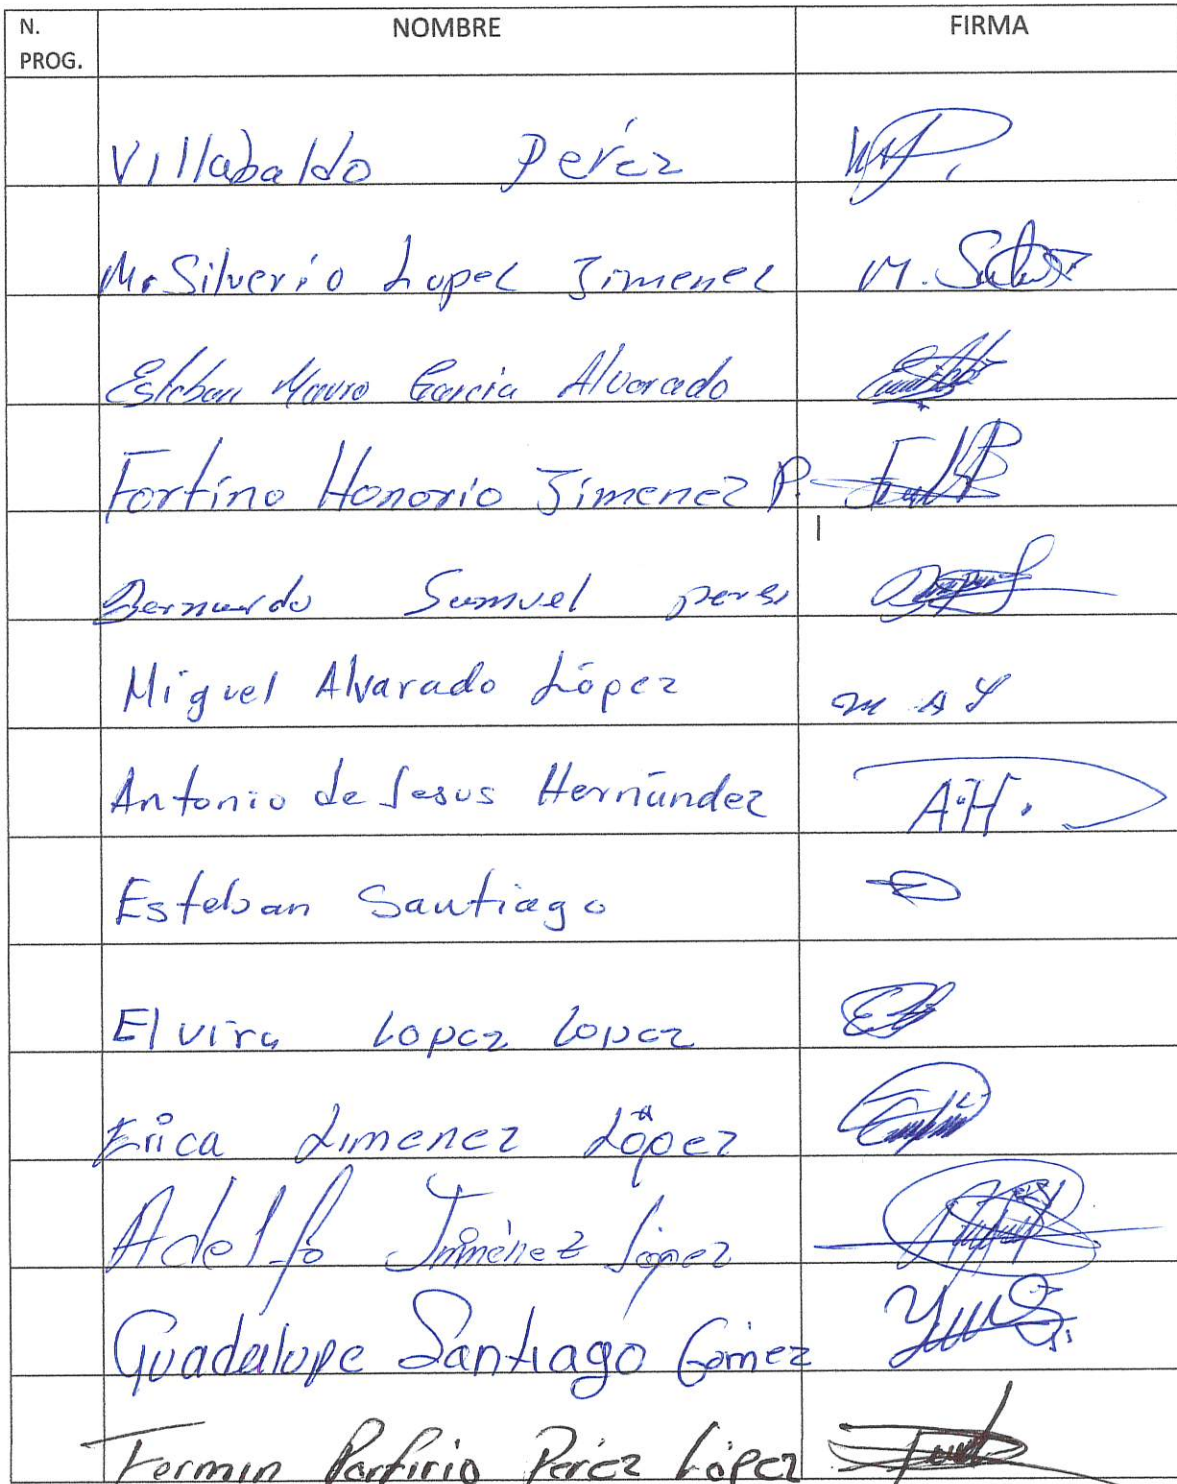 N. PROG. NOMBRE FIRMA
Villabaldo Peréz
M. Silverio Lopez Jimenez M.
Esteban Mauro Garcia Alvarado
Fortino Honorio Jimenez P.
Bernardo Samuel perez
Miguel Alvarado López M A L
Antonio de Jesus Hernández A.H.
Esteban Santiago
Elvira Lopez Lopez
Erica Jimenez López
Adelfo Jiménez López
Guadalupe Santiago Gómez
Fermin Porfirio Peréz López